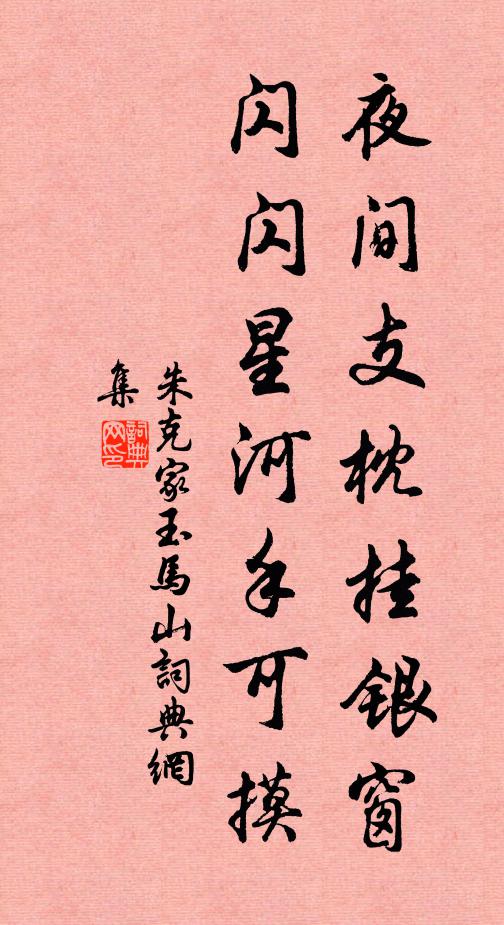 夜间支枕挂銀窗
闪闪星河手可摸
朱克家玉馬山詞典網
集
詞典
网印